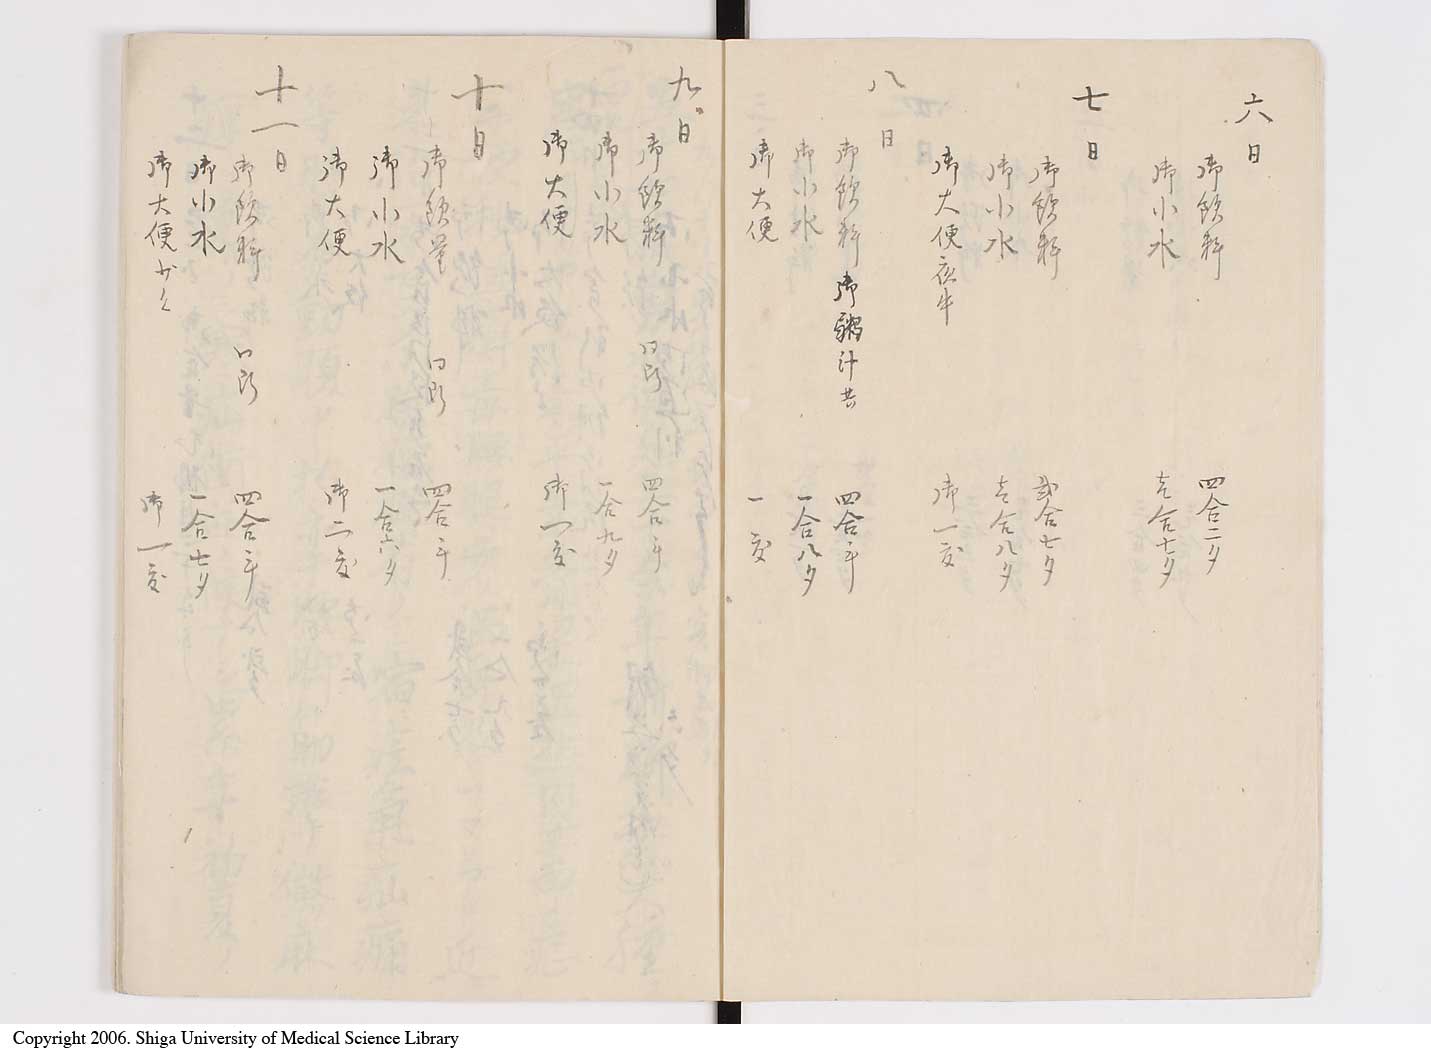 六日
御飲料 四合二夕
御小水 壱合七夕
七日
御飲料 弐合七夕
御小水 壱合八夕
御大便 夜半 御一度
八日
御飲料 御粥汁共 四合半
御小水 一合八夕
御大便 一度
九日
御飲料 同断 四合半
御小水 一合九夕
御大便 御一度
十日
御飲量 同断 四合半
御小水 一合六夕
御大便 御二度
十一日
御飲料 同断 四合半
御小水 一合七夕
御大便 少々 御一度
Copyright 2006. Shiga University of Medical Science Library